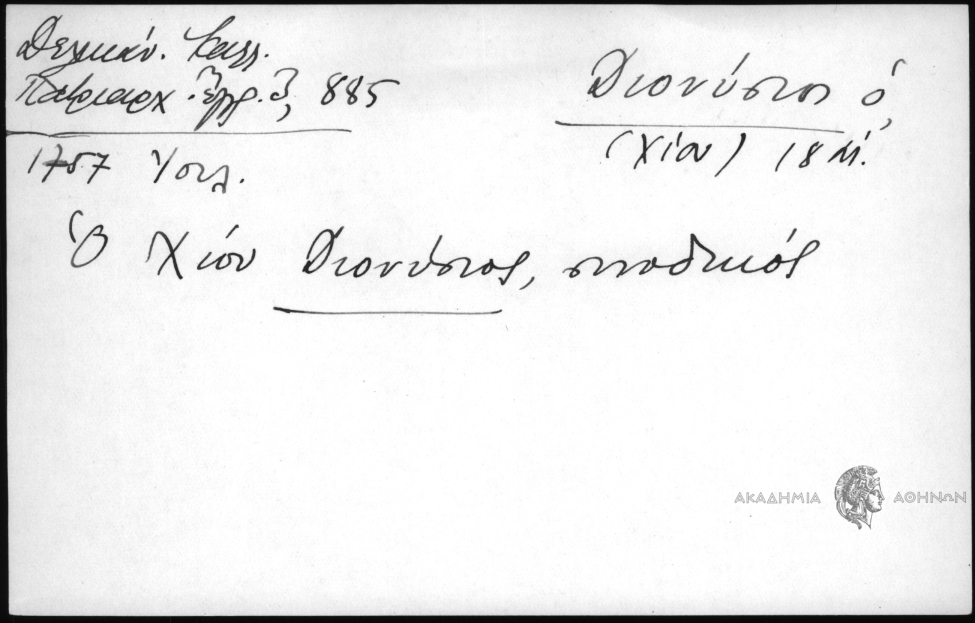 Δελικάν. Καλλ.
Πατριαρχ. Ἔγγρ. 3, 885
Διονύσιος ὁ,
(Χίου) 18 αἰ.
1757 Ἰουλ.
Ὁ Χίου Διονύσιος, συνοδικός
ΑΚΑΔΗΜΙΑ ΑΘΗΝΩΝ